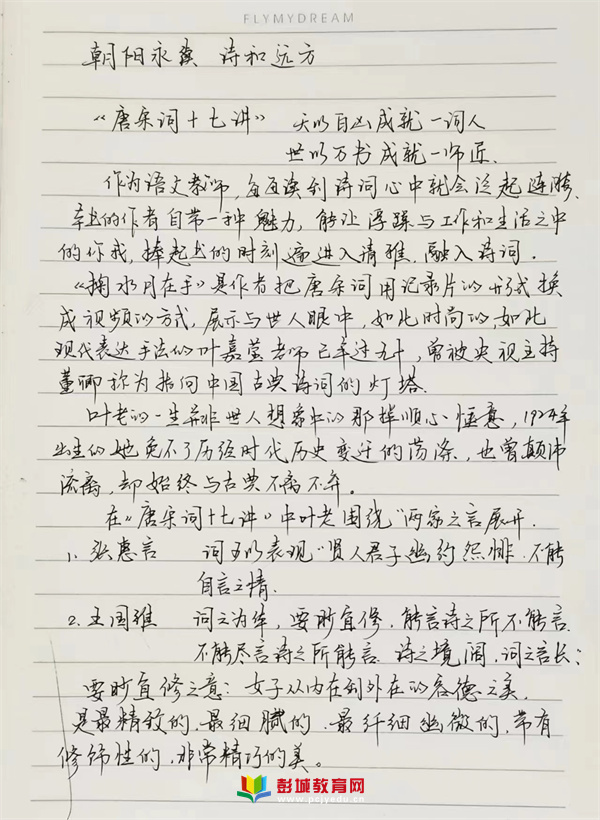 FLYMYDREAM
朝阳永龚 诗和远方
《唐宋词十七讲》 天以百凶成就一词人
世以万书成就一师匠.
作为语文教师，每每读到诗词心中就会泛起涟漪.
本书的作者自带一种魅力，能让浮躁与工作和生活之中
的你我，捧起书的时刻遂进入清雅.融入诗词.
《掬水月在手》是作者把唐宋词用记录片的形式换
成视频的方式，展示与世人眼中，如此时尚的，如此
现代表达手法的叶嘉莹老师已年过九十，曾被央视主持
董卿称为指向中国古典诗词的灯塔.
叶老的一生并非世人想象中的那样顺心惬意，1924年
出生的她免不了历经时代历史变迁的荡涤，也曾颠沛
流离，却始终与古典不离不弃。
在《唐宋词十七讲》中叶老围绕"两家之言展开.
1. 张惠言 词可以表现"贤人君子幽约怨悱.不能
自言之情.
2. 王国维 词之为体，要眇宜修.能言诗之所不能言.
不能尽言诗之所能言.诗之境阔，词之言长；
要眇宜修之意：女子从内在到外在的容德之美.
是最精致的.最细腻的.最纤细幽微的，带有
修饰性的，非常精巧的美。
彭城教育网
www.pcjyedu.cn